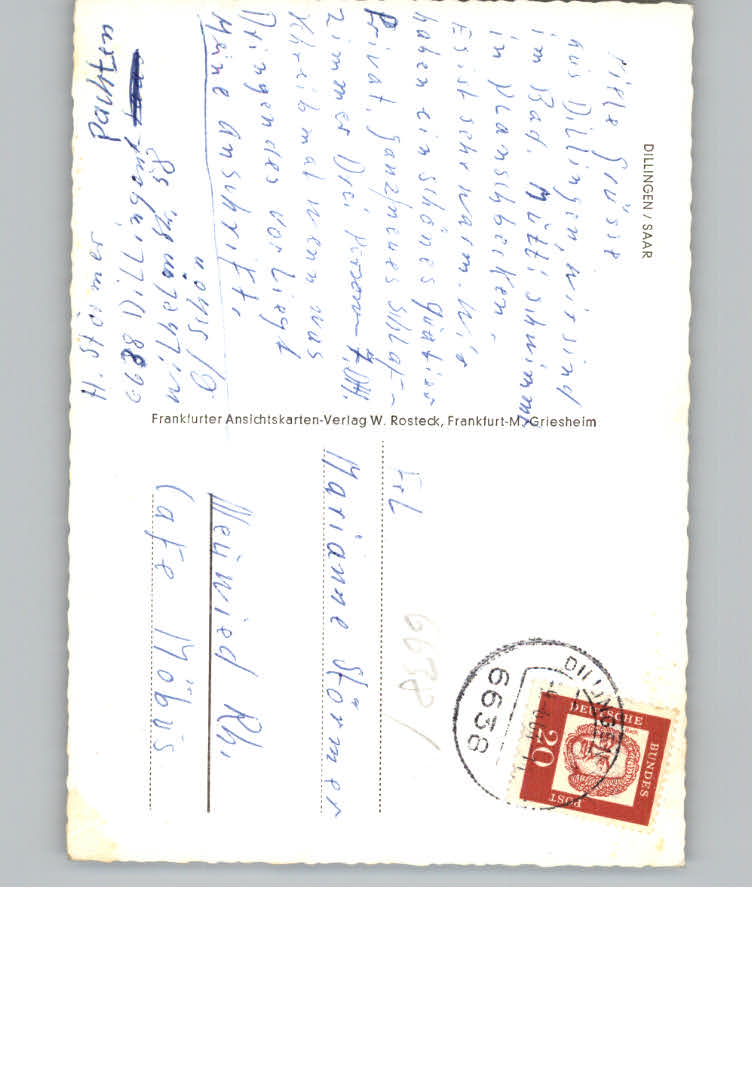 DILLINGEN / SAAR
Viele Grüsse
aus Dillingen, wir sind
im Bad. Mutti schwimmt
in Planschbecken.
Es ist sehr warm. Wir
haben ein schönes Quatier
Privat. ganz neues Schlaf-
zimmer Drei Person 7. DM.
Schreib mal wenn was
Dringendes vorliegt
Meine Anschrift.
H. Störmer
Dillingen
Frankfurter Ansichtskarten-Verlag W. Rosteck, Frankfurt-M.-Griesheim
Frl
Marianne Störmer
Neuwied Rh.
Cafe Möbus
6638
DILLINGEN
6638
DEUTSCHE
BUNDES
POST
20